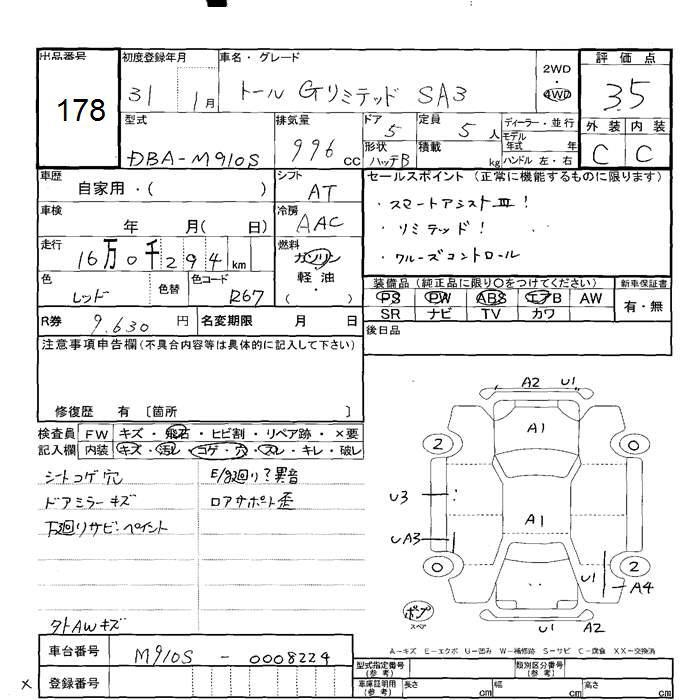 出品番号
178
初度登録年月
31 1月
車名・グレード
トール GリミテッドSA3
2WD
4WD
評価点
3.5
外装 内装
C C
型式
DBA-M910S
排気量
996 cc
ドア 5
定員 5 人
形状 ハッチB
積載 kg
ディーラー・並行
モデル年式 年
ハンドル 左・右
車歴
自家用・( )
シフト
AT
車検
年 月( 日)
冷房
AAC
走行
16万0千294km
燃料
ガソリン
軽油
・( )
色
レッド
色替
色コード
R67
セールスポイント(正常に機能するものに限ります)
・スマートアシストⅢ!
・リミテッド!
・クルーズコントロール
装備品(純正品に限り○をつけてください)
PS PW ABS エアB AW
SR ナビ TV カワ
新車保証書
有・無
R券 9,630 円
名変期限 月 日
後日品
注意事項申告欄(不具合内容等は具体的に記入して下さい)
修復歴 有 [箇所 ]
検査員記入欄
FW キズ・飛石・ヒビ割・リペア跡・×要
内装 キズ・汚レ・コゲ・穴・スレ・キレ・破レ
シートコゲ穴
ドアミラーキズ
下廻りサビ・ペイント
E/g廻り?異音
ロアサポート歪
タトAWキズ
A2 U1
A1
2
0
U3
A1
UA3
0
2
U1
A4
ポンプ
スペア
U1 A2
A-キズ E-エクボ U-凹み W-補修跡 S-サビ C-腐食 XX-交換済
車台番号
M910S - 0008224
登録番号
×
型式指定番号
(参考)
類別区分番号
(参考)
車庫証明用
(参考)
長さ cm
幅 cm
高さ cm